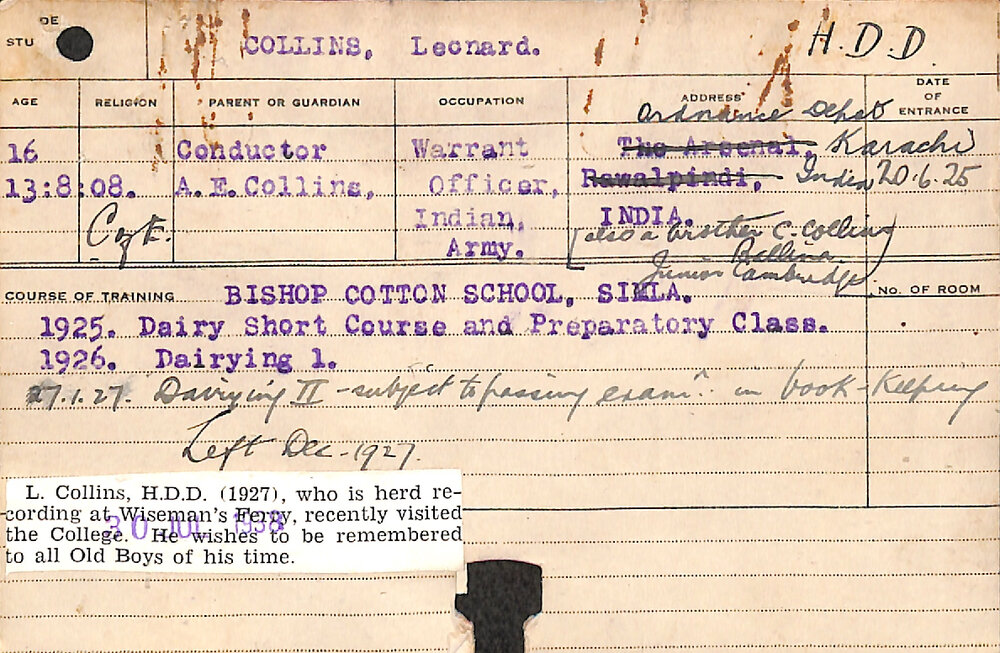 STUDE
COLLINS, Leonard. H.D.D.
AGE RELIGION PARENT OR GUARDIAN OCCUPATION ADDRESS DATE OF ENTRANCE
Ordnance Depot
16 Conductor Warrant The Arsenal, Karachi
13:8:08. A.E.Collins, Officer, Rawalpindi, India 20.6.25
C of E. Indian, INDIA.
Army. [also a brother C. Collins
Ballina.
Junior Cambridge
COURSE OF TRAINING BISHOP COTTON SCHOOL, SIMLA. No. OF ROOM
1925. Dairy Short Course and Preparatory Class.
1926. Dairying 1.
27.1.27. Dairying II - subject to passing examn. in book-keeping
Left Dec. 1927.
L. Collins, H.D.D. (1927), who is herd re-
cording at Wiseman's Ferry, recently visited
30 JUL 1938
the College. He wishes to be remembered
to all Old Boys of his time.